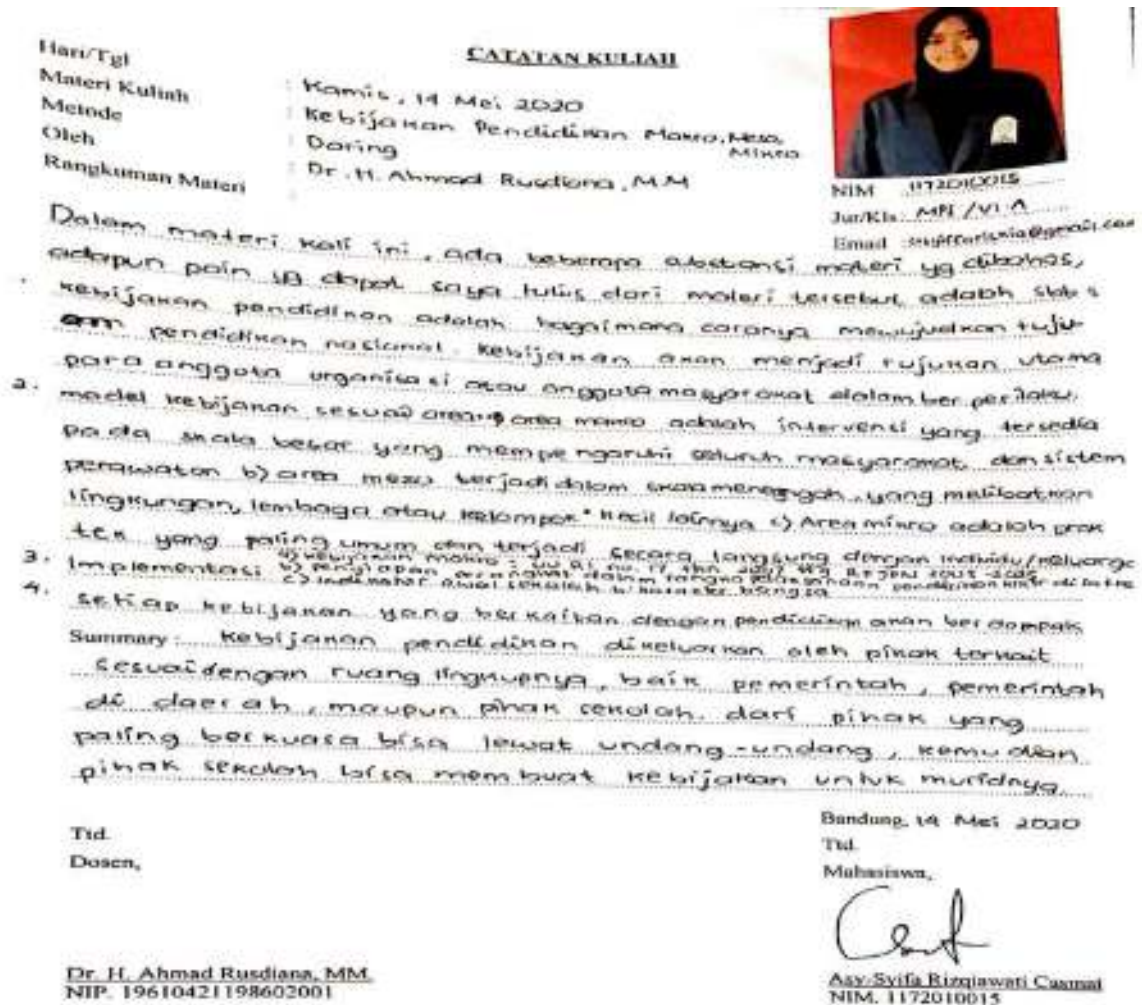 CATATAN KULIAH
Hari/Tgl : Kamis, 14 Mei 2020
Materi Kuliah : Kebijakan Pendidikan Makro, Meso, Mikro
Metode : Daring
Oleh : Dr. H. Ahmad Rusdiana, M.M
Rangkuman Materi
NIM 1172010015
Jur/Kls : MPI /VI A
Email
Dalam materi kali ini, ada beberapa materi yg dibahas,
adapun poin yg dapat saya tulis dari materi tersebut adalah sbb :
kebijakan pendidikan adalah bagaimana caranya mewujudkan tuju-
an pendidikan nasional. Kebijakan akan menjadi rujukan utama
para anggota organisasi atau anggota masyarakat dalam berperilaku.
2. model kebijakan sesuai area makro adalah intervensi yang tersedia
pada skala besar yang mempengaruhi seluruh masyarakat dan sistem
perawatan b) area mezo terjadi dalam skala menengah, yang melibatkan
lingkungan, lembaga atau kelompok" kecil lainnya c) Area mikro adalah prak
tek yang paling umum dan terjadi secara langsung dengan individu/keluarga
3. Implementasi a) kebijakan makro : UU RI no. 17 thn
b) penyiapan perangkat dalam rangka pelaksanaan pendidikan
c)
4. setiap kebijakan yang berkaitan dengan pendidikan akan berdampak
Summary : Kebijakan pendidikan dikeluarkan oleh pihak terkait
sesuai dengan ruang lingkupnya, baik pemerintah, pemerintah
di daerah, maupun pihak sekolah. dari pihak yang
paling berkuasa bisa lewat undang-undang, kemudian
pihak sekolah bisa membuat kebijakan untuk muridnya.
Bandung, 14 Mei 2020
Ttd.
Dosen,
Ttd.
Mahasiswa,
Dr. H. Ahmad Rusdiana, MM.
NIP. 19610421198602001
Asy-Syifa Rizqiawati Casmai
NIM. 1172010015